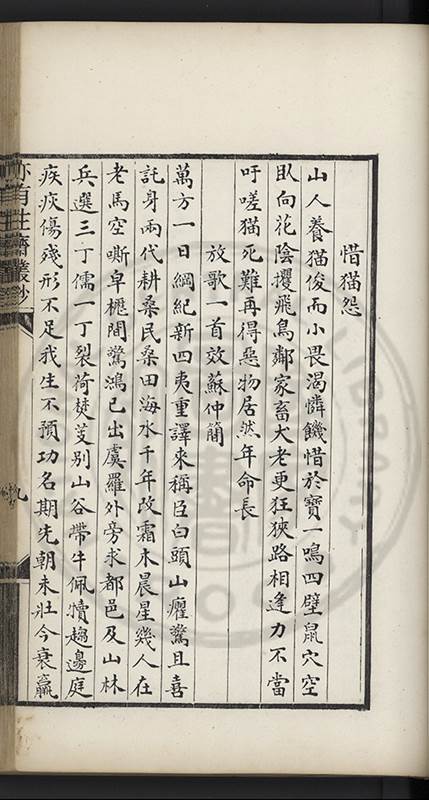 惜猫怨
山人養猫俊而小畏渴憐饑惜於寶一鳴四壁鼠穴空
臥向花陰攫飛鳥鄰家畜犬老更狂狹路相逢力不當
吁嗟猫死難再得惡物居然年命長
放歌一首效蘇仲簡
萬方一日綱紀新四夷重譯來稱臣白頭山癯驚且喜
託身兩代耕桑民桑田海水千年改霜木晨星幾人在
老馬空嘶皁櫪間驚鴻已出虞羅外旁求都邑及山林
兵選三丁儒一丁裂荷焚芰別山谷帶牛佩犢趨邊庭
疾疢傷殘形不足我生不預功名期先朝未壯今衰羸
亦有生齋叢鈔
九